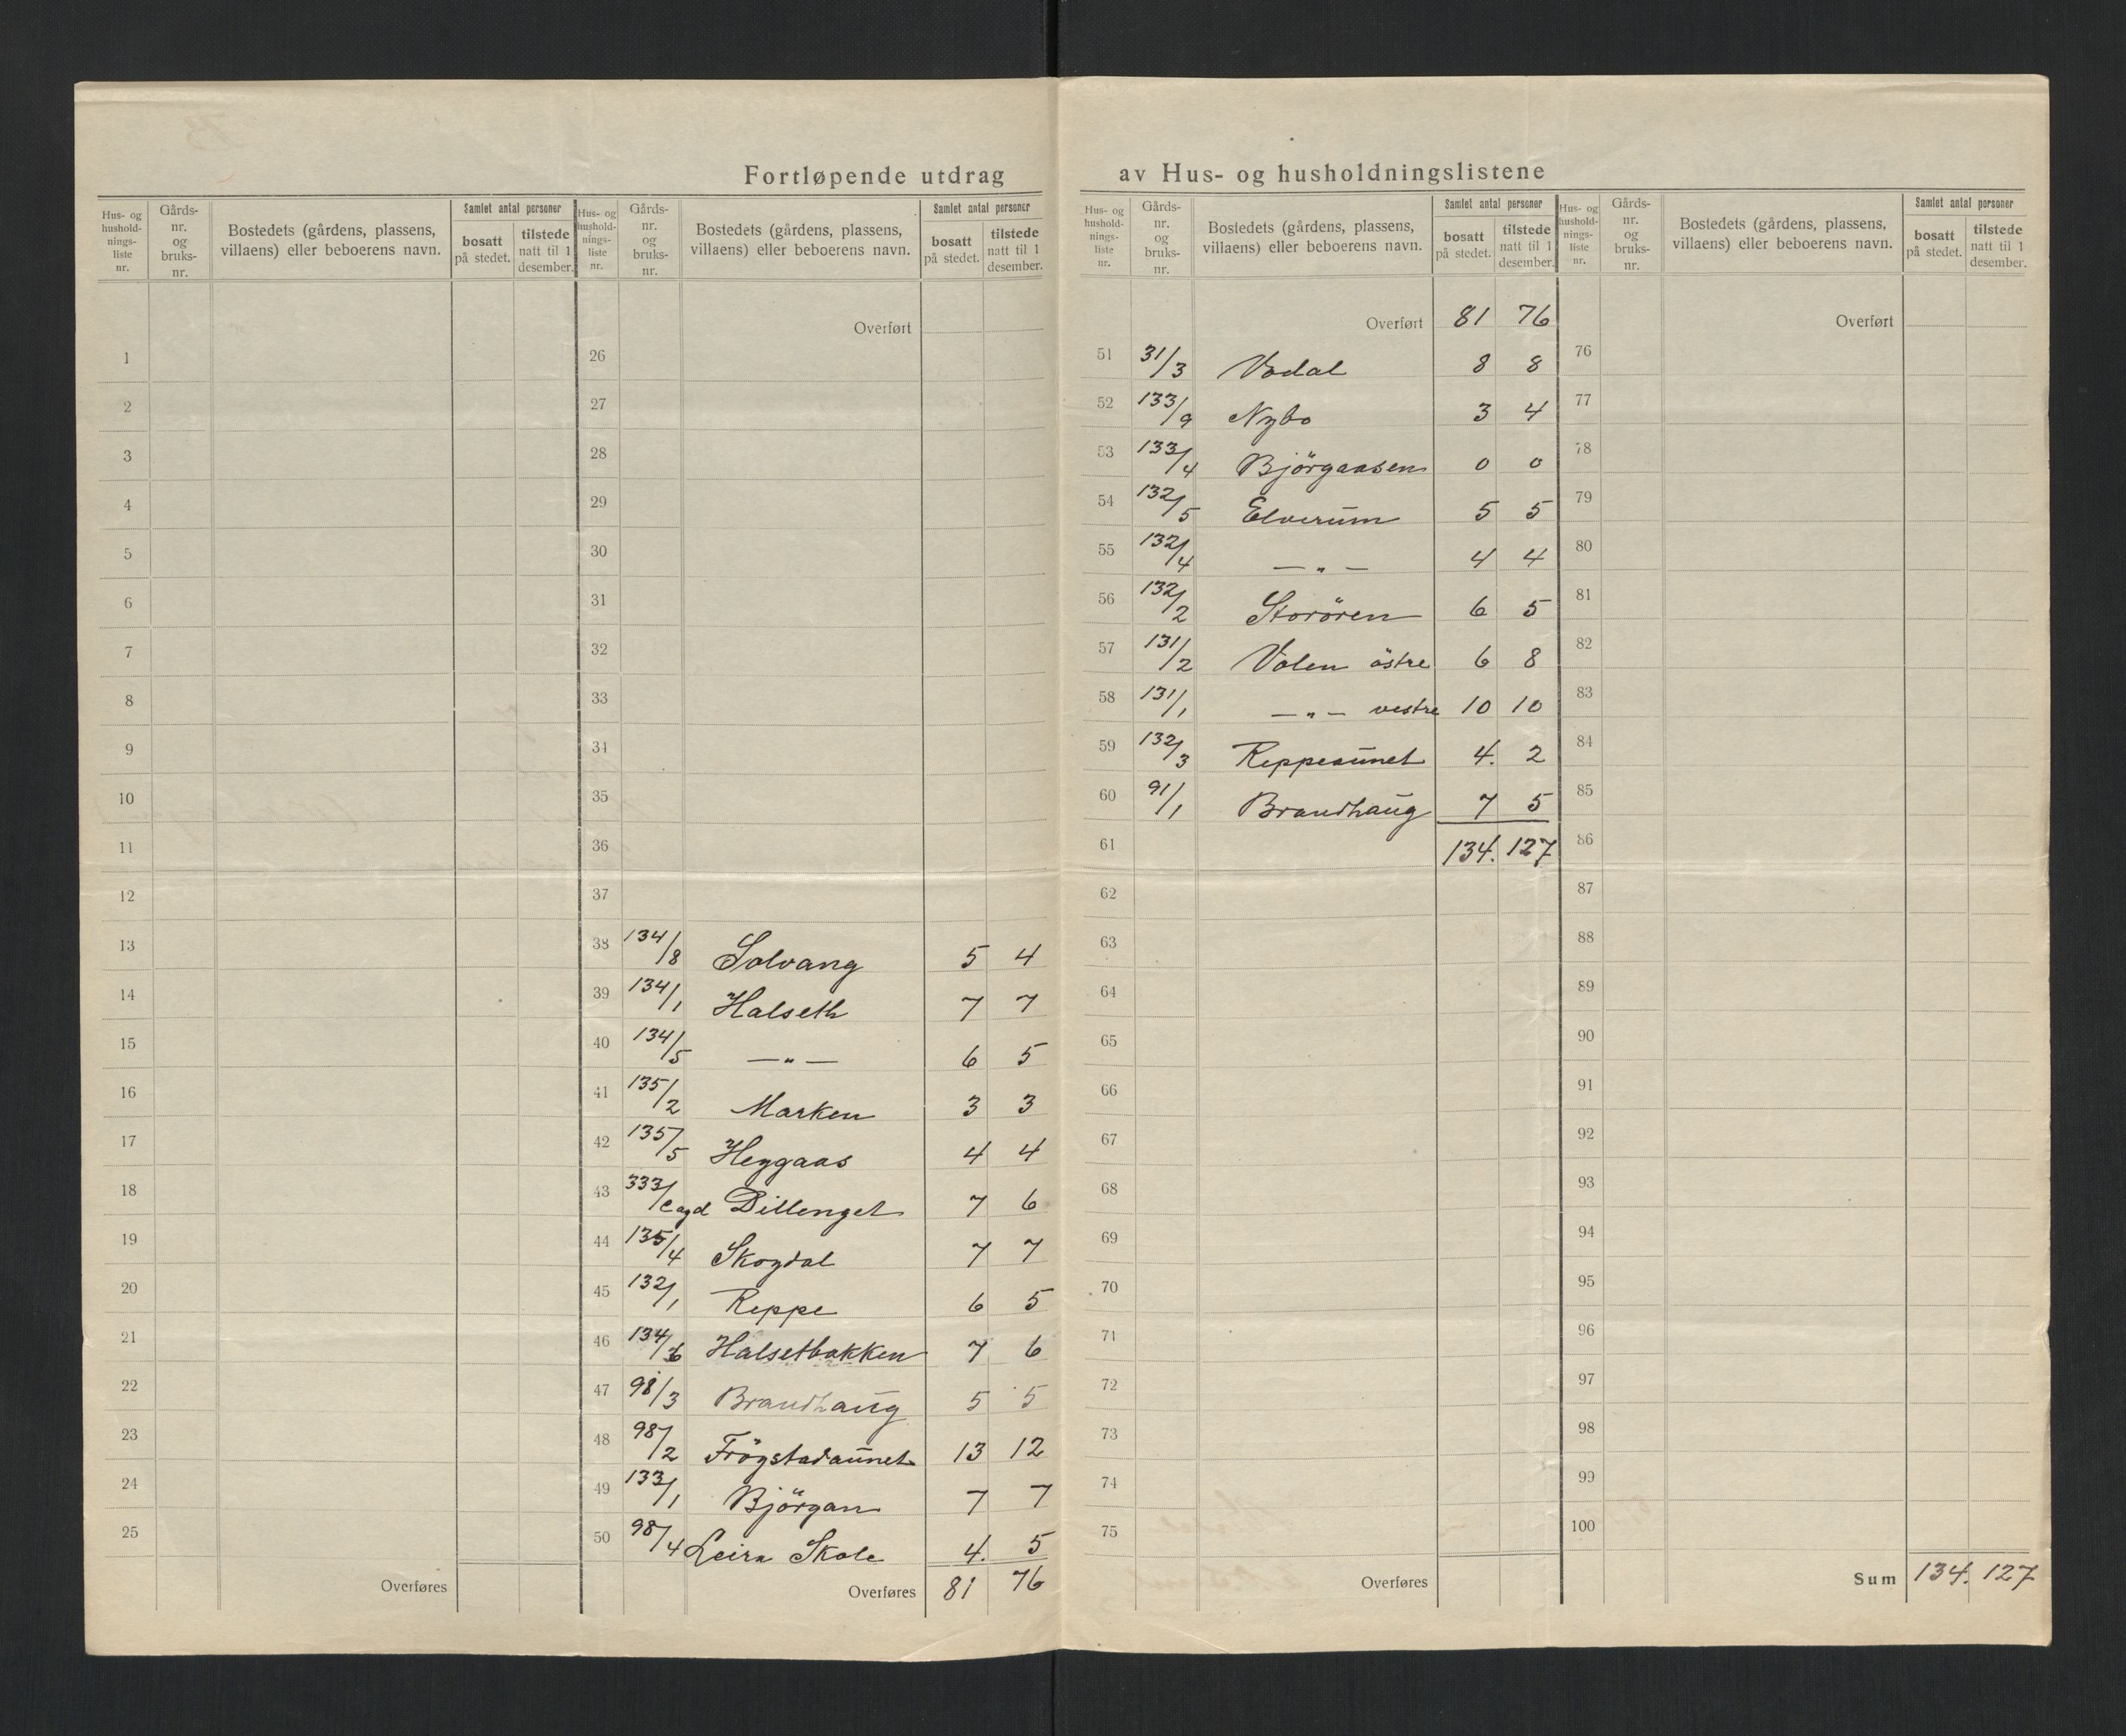 Fortløpende utdrag av Hus- og husholdningslistene
Hus- og hushold- nings- liste nr. | Gårds- nr. og bruks- nr. | Bostedets (gårdens, plassens, villaens) eller beboerens navn. | Samlet antal personer | bosatt på stedet. | tilstede natt til 1 desember.
1
2
3
4
5
6
7
8
9
10
11
12
13
14
15
16
17
18
19
20
21
22
23
24
25
Overføres
Hus- og hushold- nings- liste nr. | Gårds- nr. og bruks- nr. | Bostedets (gårdens, plassens, villaens) eller beboerens navn. | Samlet antal personer | bosatt på stedet. | tilstede natt til 1 desember.
Overført
26
27
28
29
30
31
32
33
34
35
36
37
38 134/8 Solvang 5 4
39 134/1 Halseth 7 7
40 134/5 —"— 6 5
41 135/2 Marken 3 3
42 135/5 Heggaas 4 4
43 333/ Dillenget 7 6
44 135/4 Skogdal 7 7
45 132/1 Reppe 6 5
46 134/6 Halsetbakken 7 6
47 98/3 Brandhaug 5 5
48 98/2 Frögstadaunet 13 12
49 133/1 Björgan 7 7
50 98/4 Leira Skole 4. 5
Overføres 81 76
Hus- og hushold- nings- liste nr. | Gårds- nr. og bruks- nr. | Bostedets (gårdens, plassens, villaens) eller beboerens navn. | Samlet antal personer | bosatt på stedet. | tilstede natt til 1 desember.
Overført 81 76
51 31/3 Vodal 8 8
52 133/9 Nybo 3 4
53 133/4 Björgaasen 0 0
54 132/5 Elverum 5 5
55 132/4 —"— 4 4
56 132/2 Storören 6 5
57 131/2 Volen östre 6 8
58 131/1 —"— vestre 10 10
59 132/3 Reppeaunet 4. 2
60 91/1 Brandhaug 7 5
61 134. 127
62
63
64
65
66
67
68
69
70
71
72
73
74
75
Overføres
Hus- og hushold- nings- liste nr. | Gårds- nr. og bruks- nr. | Bostedets (gårdens, plassens, villaens) eller beboerens navn. | Samlet antal personer | bosatt på stedet. | tilstede natt til 1 desember.
Overført
76
77
78
79
80
81
82
83
84
85
86
87
88
89
90
91
92
93
94
95
96
97
98
99
100
Sum 134. 127